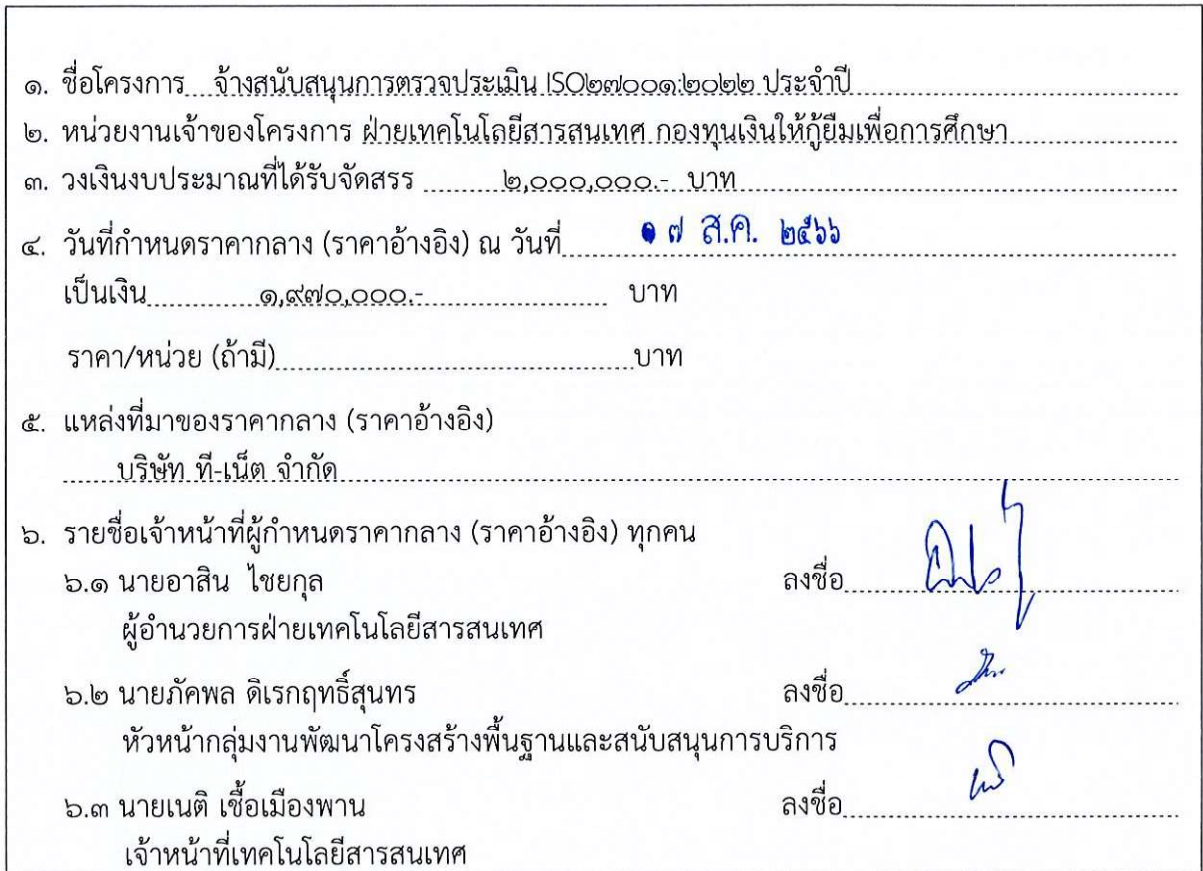 ๑. ชื่อโครงการ จ้างสนับสนุนการตรวจประเมิน ISO๒๗๐๐๑:๒๐๒๒ ประจำปี
๒. หน่วยงานเจ้าของโครงการ ฝ่ายเทคโนโลยีสารสนเทศ กองทุนเงินให้กู้ยืมเพื่อการศึกษา
๓. วงเงินงบประมาณที่ได้รับจัดสรร ๒,๐๐๐,๐๐๐.- บาท
๔. วันที่กำหนดราคากลาง (ราคาอ้างอิง) ณ วันที่ ๑๗ ส.ค. ๒๕๖๖
เป็นเงิน ๑,๙๗๐,๐๐๐.- บาท
ราคา/หน่วย (ถ้ามี) บาท
๕. แหล่งที่มาของราคากลาง (ราคาอ้างอิง)
บริษัท ที-เน็ต จำกัด
๖. รายชื่อเจ้าหน้าที่ผู้กำหนดราคากลาง (ราคาอ้างอิง) ทุกคน
๖.๑ นายอาสิน ไชยกุล ลงชื่อ
ผู้อำนวยการฝ่ายเทคโนโลยีสารสนเทศ
๖.๒ นายภัคพล ดิเรกฤทธิ์สุนทร ลงชื่อ
หัวหน้ากลุ่มงานพัฒนาโครงสร้างพื้นฐานและสนับสนุนการบริการ
๖.๓ นายเนติ เชื้อเมืองพาน ลงชื่อ
เจ้าหน้าที่เทคโนโลยีสารสนเทศ